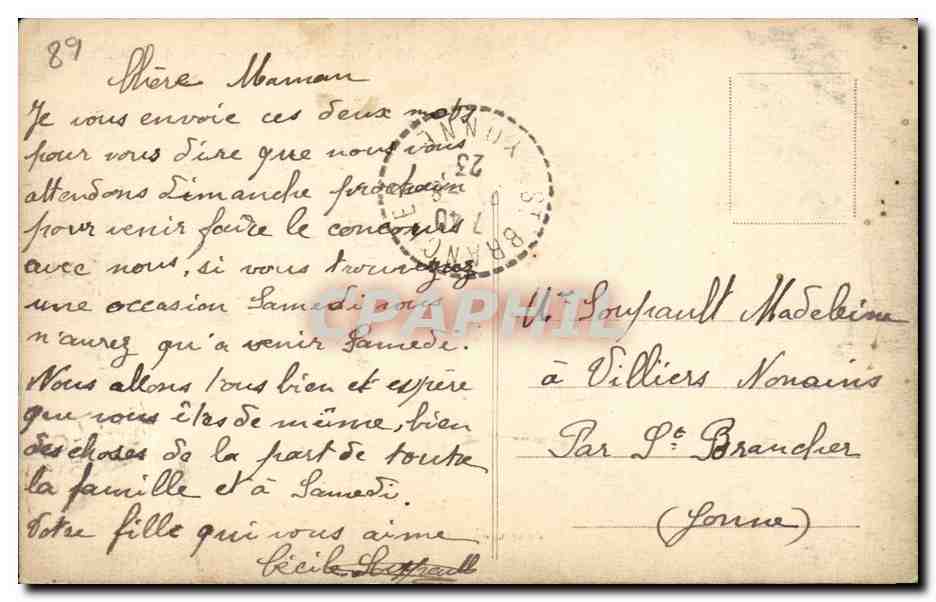 89
Chère Maman
Je vous envoie ces deux mots
pour vous dire que nous vous
attendons dimanche prochain
pour venir faire le concours
avec nous, si vous trouveyiez
une occasion Samedi vous
n'aurez qu'a venir Samedi.
Nous allons tous bien et espère
que vous êtes de même, bien
des choses de la part de toute
la famille et à Samedi.
Votre fille qui vous aime
Cécile Soupault
ST BRANCHER
YONNE
7 40
23
CPAPHIL
Me Soupault Madeleine
à Villiers Nonains
Par St Brancher
(Yonne)